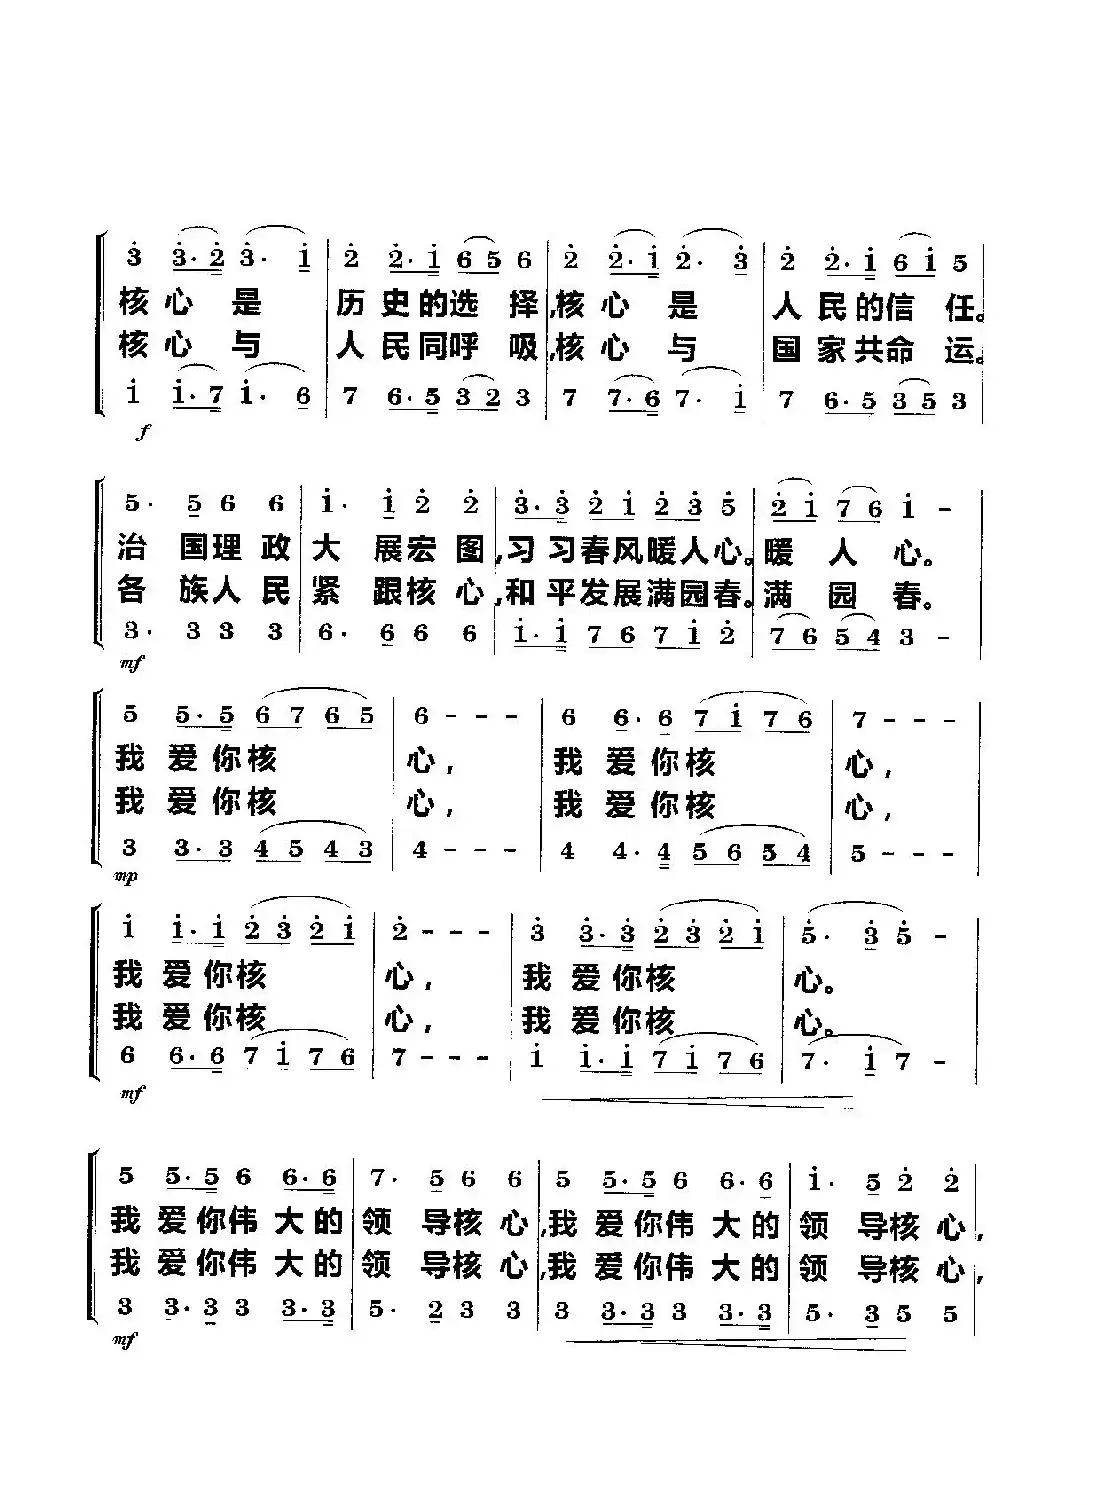 3 3·2 3· 1 | 2 2·1 6 5 6 | 2 2·1 2· 3 | 2 2·1 6 1 5
核心 是 历史的选择,核心 是 人民的信任。
核心 与 人民同呼吸,核心 与 国家共命运。
1 1·7 1· 6 | 7 6·5 3 2 3 | 7 7·6 7· 1 | 7 6·5 3 5 3
f
5· 5 6 6 | 1· 1 2 2 | 3·3 2 1 2 3 5 | 2 1 7 6 1 -
治 国理政 大 展宏图,习习春风暖人心。暖人心。
各 族人民 紧 跟核心,和平发展满园春。满园春。
3· 3 3 3 | 6· 6 6 6 | 1·1 7 6 7 1 2 | 7 6 5 4 3 -
mf
5 5·5 6 7 6 5 | 6 - - - | 6 6·6 7 1 7 6 | 7 - - -
我 爱你核 心, 我 爱你核 心,
我 爱你核 心, 我 爱你核 心,
3 3·3 4 5 4 3 | 4 - - - | 4 4·4 5 6 5 4 | 5 - - -
mp
1 1·1 2 3 2 1 | 2 - - - | 3 3·3 2 3 2 1 | 5· 3 5 -
我 爱你核 心, 我 爱你核 心。
我 爱你核 心, 我 爱你核 心。
6 6·6 7 1 7 6 | 7 - - - | 1 1·1 7 1 7 6 | 7· 1 7 -
mf
5 5·5 6 6·6 | 7· 5 6 6 | 5 5·5 6 6·6 | 1· 5 2 2
我 爱你伟大的 领 导核心,我 爱你伟大的 领 导核心,
我 爱你伟大的 领 导核心,我 爱你伟大的 领 导核心,
3 3·3 3 3·3 | 5· 2 3 3 | 3 3·3 3 3·3 | 5· 3 5 5
mf